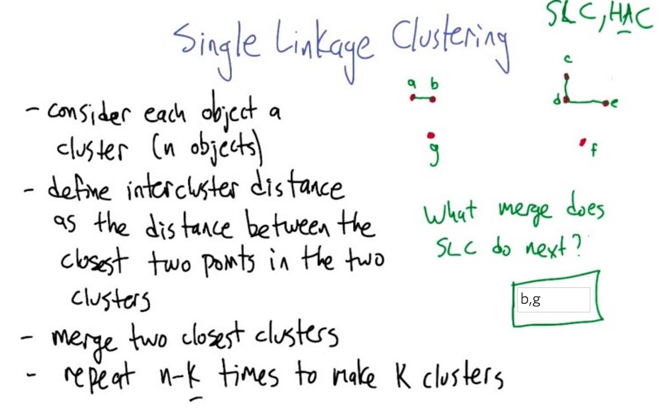 SLC, HAC
Single Linkage Clustering
- consider each object a
cluster (n objects)
- define intercluster distance
as the distance between the
closest two points in the two
clusters
- merge two closest clusters
- repeat n-K times to make K clusters
a b
g
c
d e
f
What merge does
SLC do next?
b,g